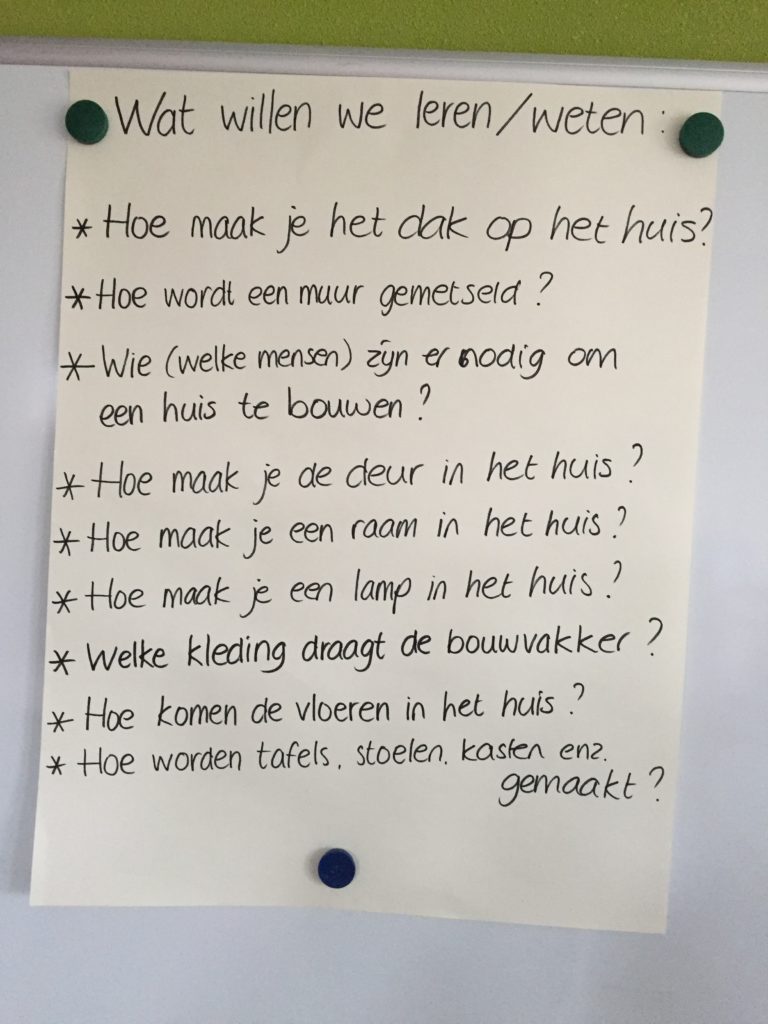 Wat willen we leren/weten:
* Hoe maak je het dak op het huis?
* Hoe wordt een muur gemetseld?
* Wie (welke mensen) zijn er nodig om
een huis te bouwen?
* Hoe maak je de deur in het huis?
* Hoe maak je een raam in het huis?
* Hoe maak je een lamp in het huis?
* Welke kleding draagt de bouwvakker?
* Hoe komen de vloeren in het huis?
* Hoe worden tafels, stoelen, kasten enz.
gemaakt?